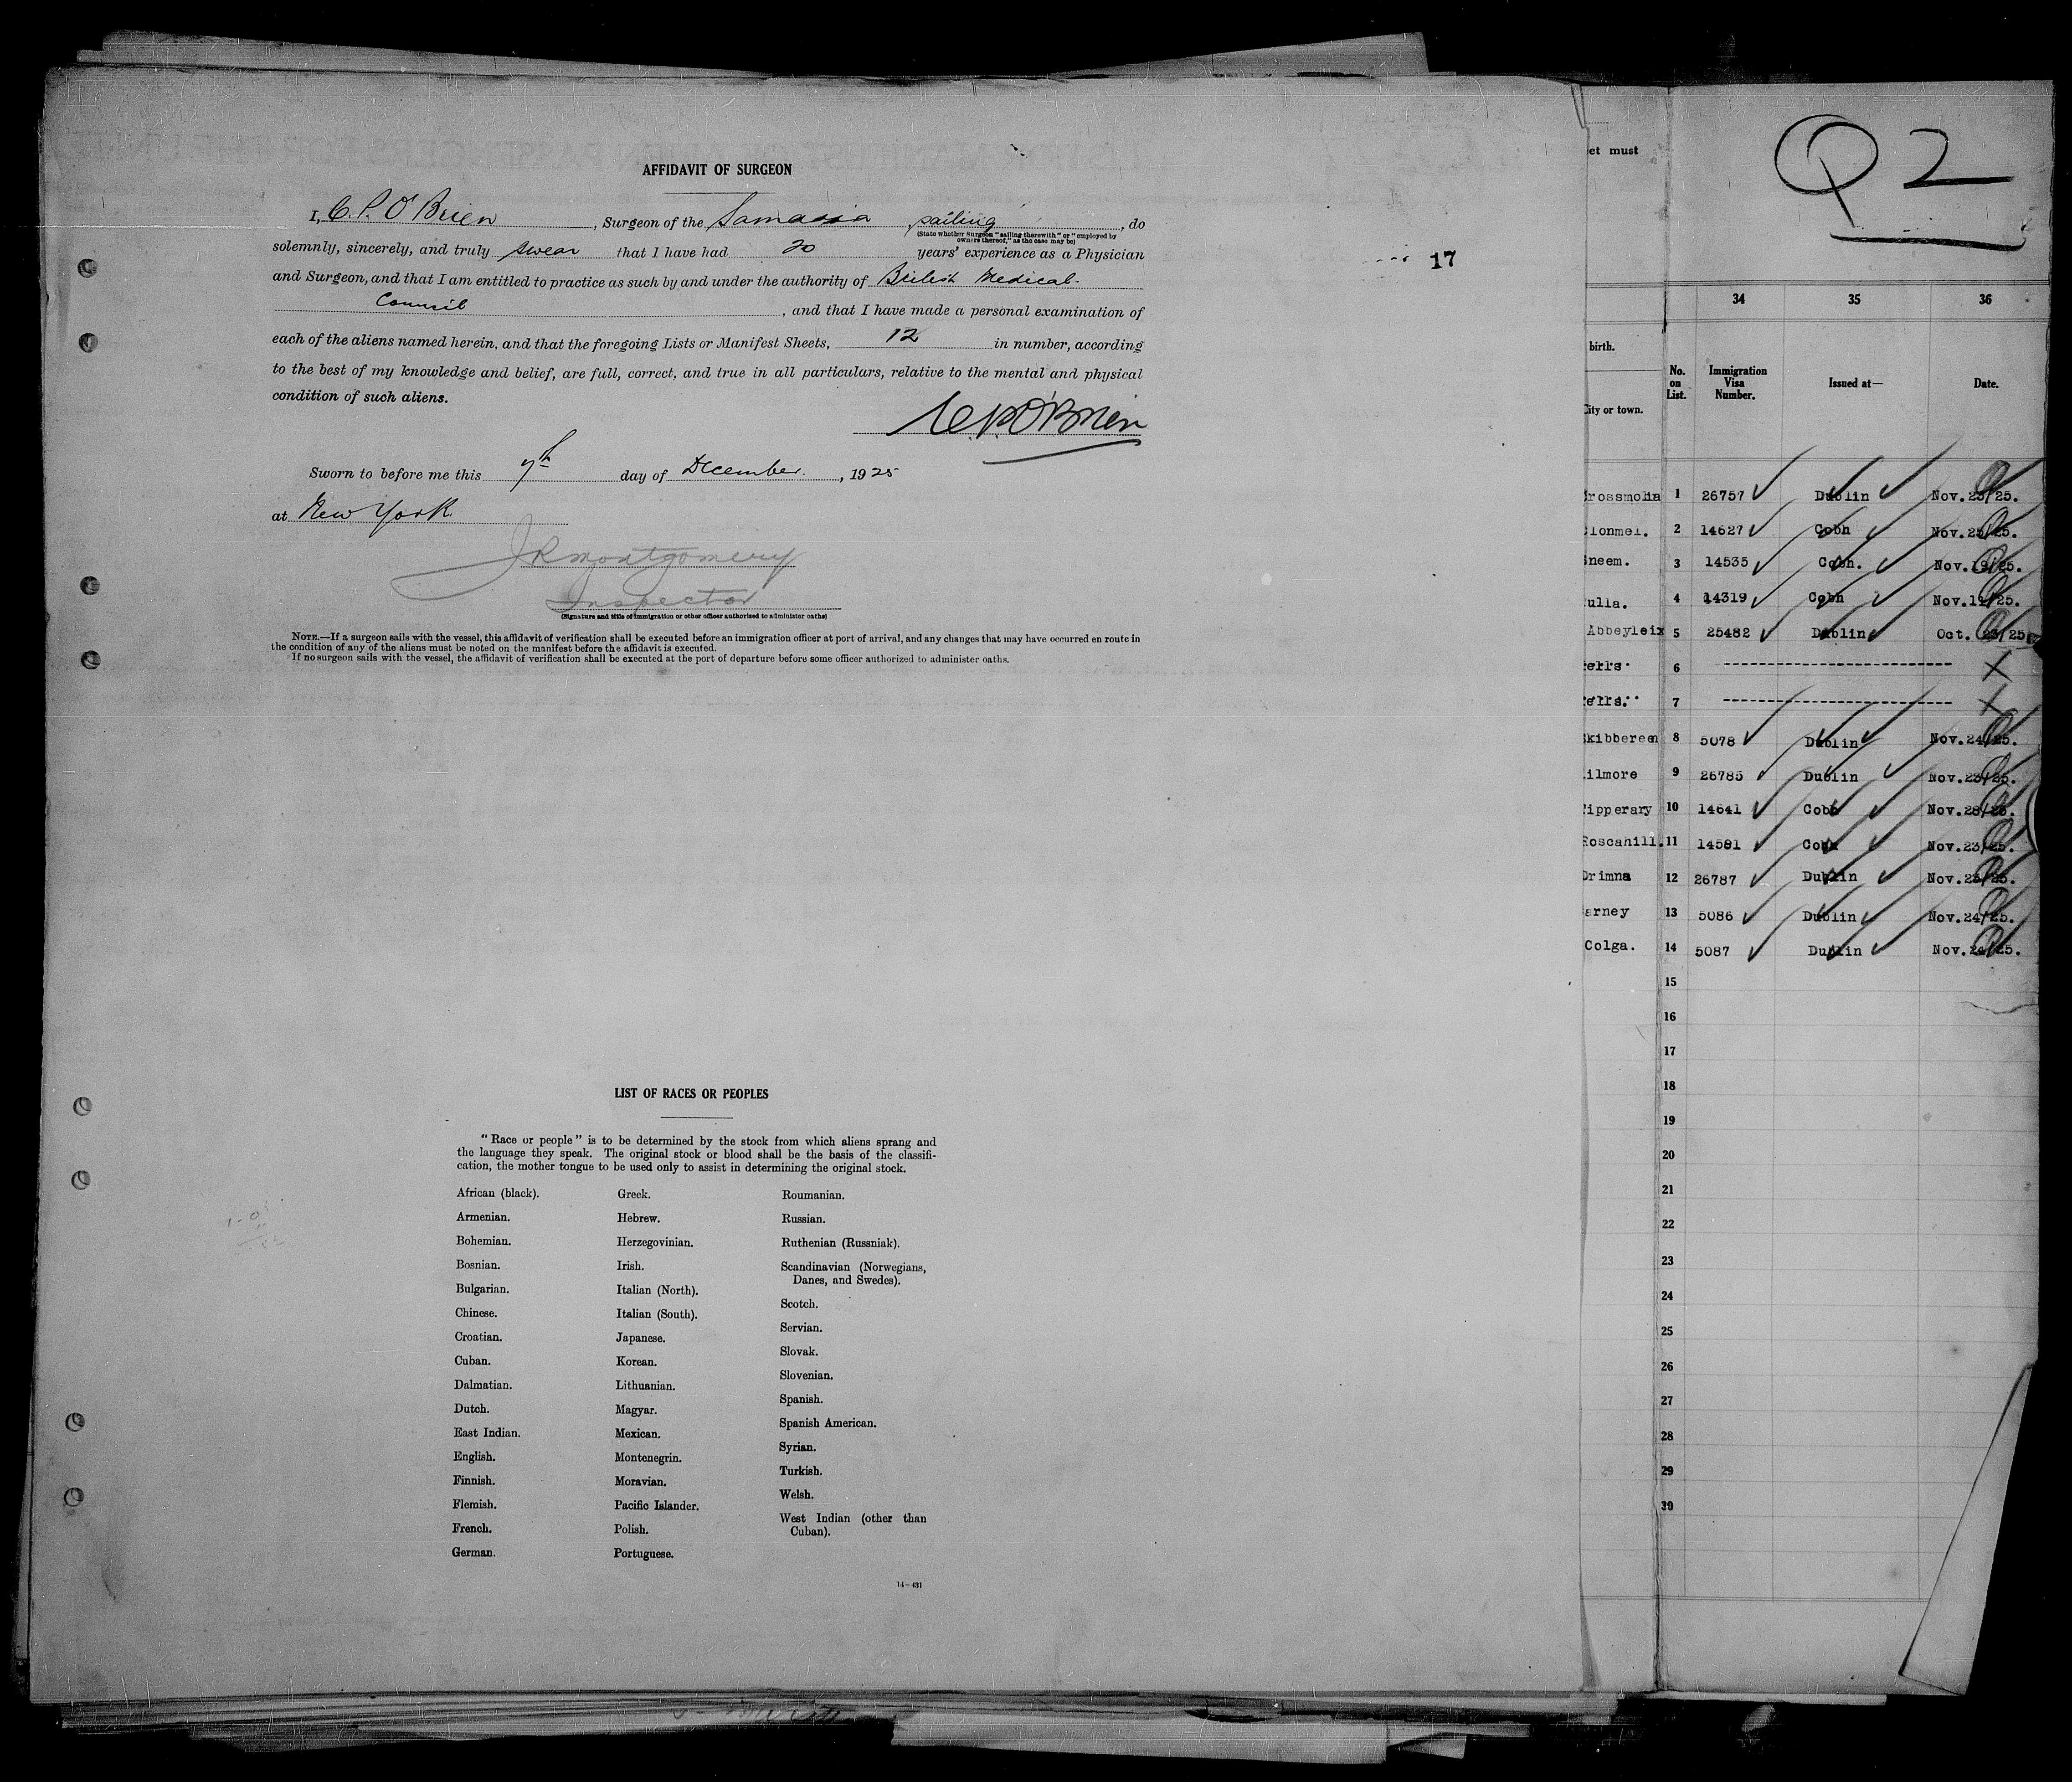 AFFIDAVIT OF SURGEON
I, C. P. O'Brien, Surgeon of the Samaria sailing, do
(State whether Surgeon "sailing therewith" or "employed by
owners thereof," as the case may be)
solemnly, sincerely, and truly swear that I have had 20 years' experience as a Physician
and Surgeon, and that I am entitled to practice as such by and under the authority of British Medical
Council, and that I have made a personal examination of
each of the aliens named herein, and that the foregoing Lists or Manifest Sheets, 12 in number, according
to the best of my knowledge and belief, are full, correct, and true in all particulars, relative to the mental and physical
condition of such aliens.
C.P. O'Brien
Sworn to before me this 7th day of December, 1925
at New York
J R Montgomery
Inspector
(Signature and title of immigration or other officer authorized to administer oaths)
NOTE.—If a surgeon sails with the vessel, this affidavit of verification shall be executed before an immigration officer at port of arrival, and any changes that may have occurred en route in
the condition of any of the aliens must be noted on the manifest before the affidavit is executed.
If no surgeon sails with the vessel, the affidavit of verification shall be executed at the port of departure before some officer authorized to administer oaths.
17
LIST OF RACES OR PEOPLES
"Race or people" is to be determined by the stock from which aliens sprang and
the language they speak. The original stock or blood shall be the basis of the classifi-
cation, the mother tongue to be used only to assist in determining the original stock.
African (black).
Armenian.
Bohemian.
Bosnian.
Bulgarian.
Chinese.
Croatian.
Cuban.
Dalmatian.
Dutch.
East Indian.
English.
Finnish.
Flemish.
French.
German.
Greek.
Hebrew.
Herzegovinian.
Irish.
Italian (North).
Italian (South).
Japanese.
Korean.
Lithuanian.
Magyar.
Mexican.
Montenegrin.
Moravian.
Pacific Islander.
Polish.
Portuguese.
Roumanian.
Russian.
Ruthenian (Russniak).
Scandinavian (Norwegians,
Danes, and Swedes).
Scotch.
Servian.
Slovak.
Slovenian.
Spanish.
Spanish American.
Syrian.
Turkish.
Welsh.
West Indian (other than
Cuban).
14—431
et must
Q2
34 35 36
birth.
City or town.
No. on List. Immigration Visa Number. Issued at— Date.
rossmolina 1 26757 Dublin Nov. 23/25.
lonmel. 2 14627 Cobh Nov. 25/25.
neem. 3 14535 Cobh. Nov. 19/25.
ulla. 4 14319 Cobh Nov. 11/25.
Abbeyleix 5 25482 Dublin Oct. 23/25
ells. 6 X
ells. 7 X
kibbereen 8 5078 Dublin Nov. 24/25.
ilmore 9 26785 Dublin Nov. 23/25.
ipperary 10 14641 Cobh Nov. 28/25.
Roscahill. 11 14581 Cobh Nov. 23/25.
Drimna 12 26787 Dublin Nov. 23/25.
arney 13 5086 Dublin Nov. 24/25.
Colga. 14 5087 Dublin Nov. 24/25.
15
16
17
18
19
20
21
22
23
24
25
26
27
28
29
30